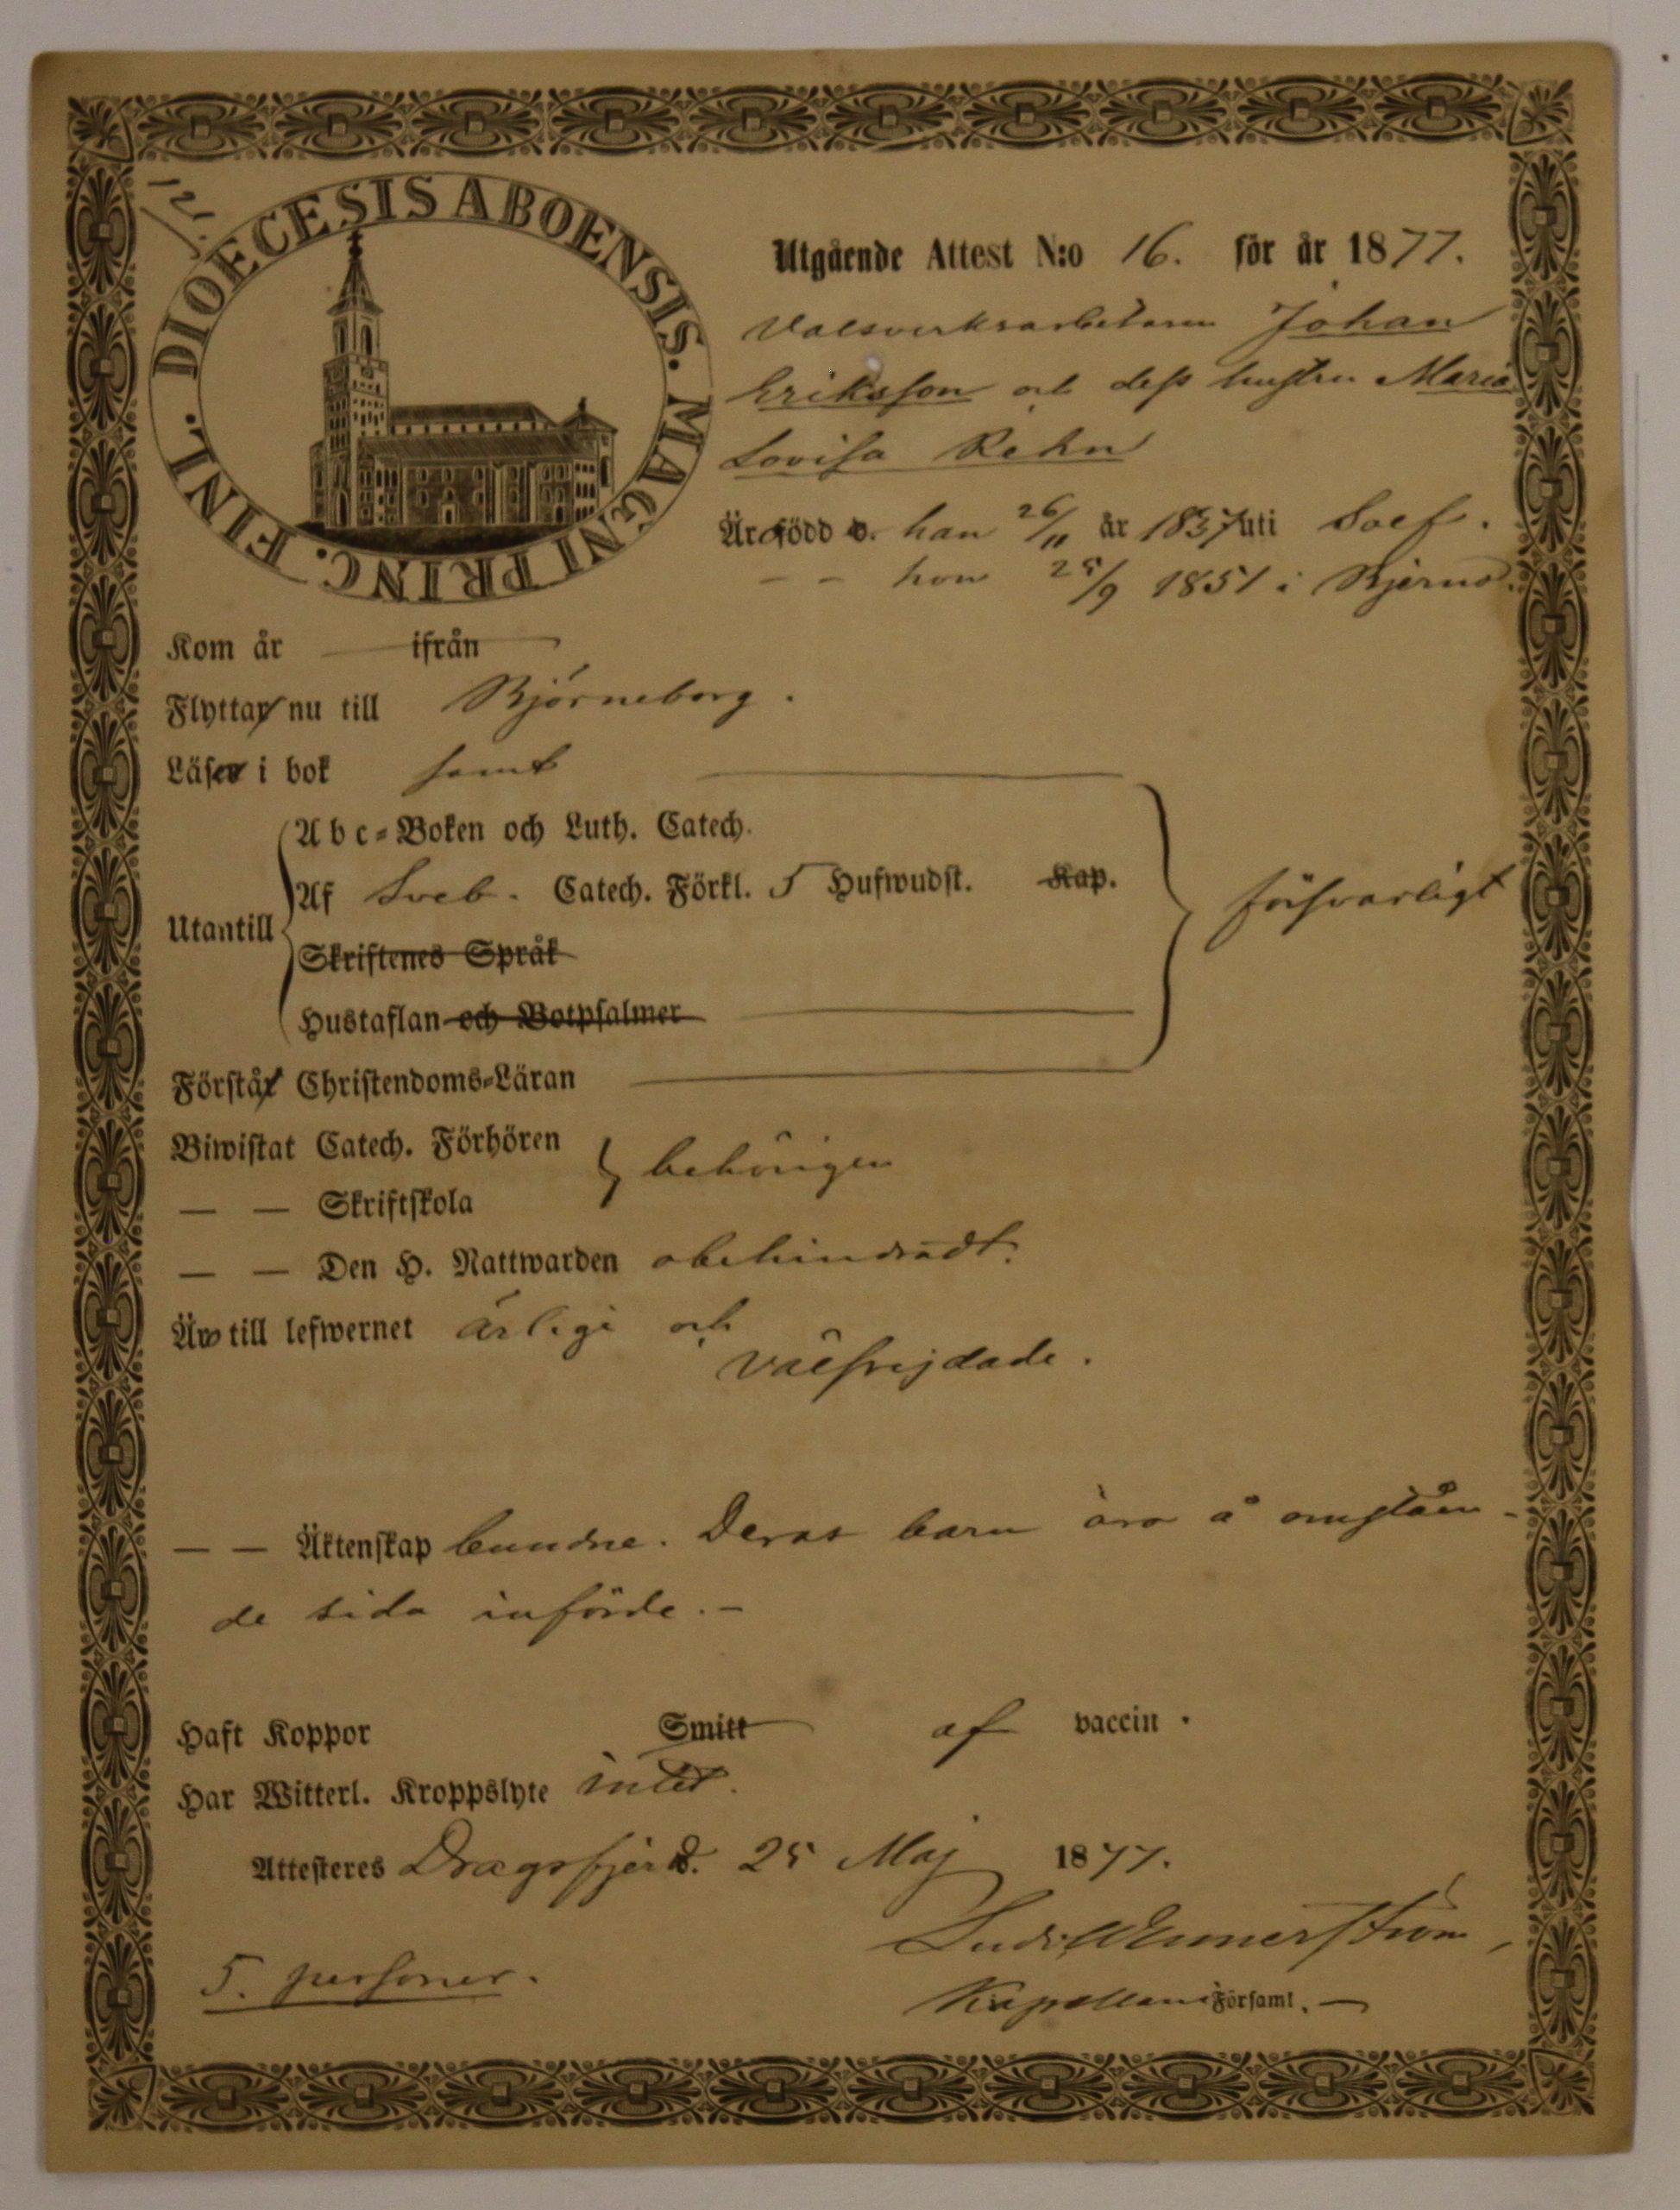 121.
DIOECESIS ABOENSIS. MAGNI PRINC. FINL.
Utgående Attest N:o 16. för år 1877.
Valsverksarbetaren Johan
Eriksson och dess hustru Maria
Lovisa Rehn
Äro född d. han 26/11 år 1837 uti
– – hon 25/9 1851 i Bjerno.
Kom år — ifrån —
Flyttar nu till Björneborg.
Läser i bok samt
Abc-Boken och Luth. Catech.
Utantill
Af Sveb. Catech. Förkl. 5 Hufwudst. Kap.
försvarligt
Skriftenes Språk
Hustaflan och Botpsalmer
Förstår Christendoms-Läran
Biwistat Catech. Förhören
behörigen
— — Skriftskola
— — Den H. Nattwarden obehindradt.
Äro till lefwernet ärlige och
välfrejdade.
— — Äktenskap bundne. Deras barn äro å omståen-
de sida införde.–
Haft Koppor Smitt af vaccin.
Har Witterl. Kroppslyte intet.
Attesteres Dragsfjerd. 25 Maj 1877.
Wennerström,
5. personer.
Kapellan i Församl. —